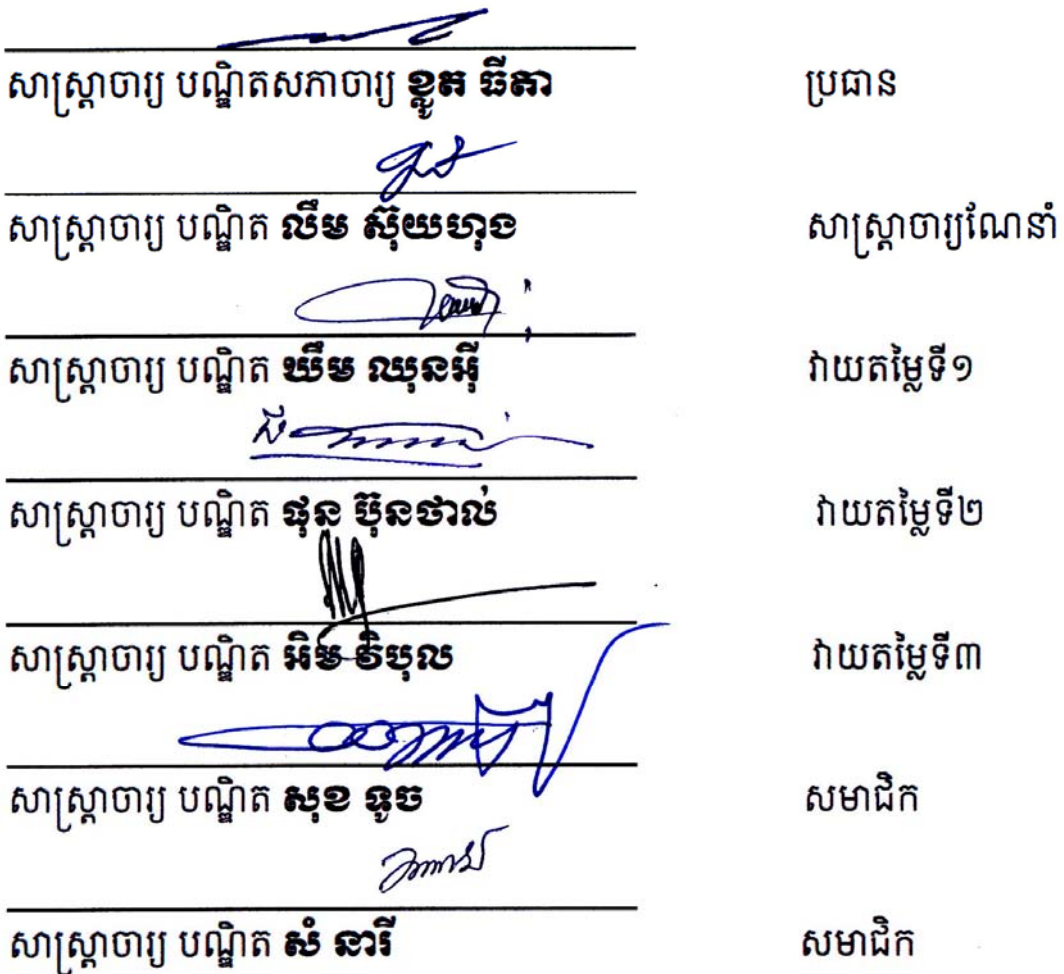 សាស្ត្រាចារ្យ បណ្ឌិតសភាចារ្យ ខ្លូត ធីតា ប្រធាន
សាស្ត្រាចារ្យ បណ្ឌិត លឹម ស៊ុយហុង សាស្ត្រាចារ្យណែនាំ
សាស្ត្រាចារ្យ បណ្ឌិត ឃឹម ឈុនអ៊ី វាយតម្លៃទី១
សាស្ត្រាចារ្យ បណ្ឌិត ផុន ប៊ុនថាល់ វាយតម្លៃទី២
សាស្ត្រាចារ្យ បណ្ឌិត អិម វិបុល វាយតម្លៃទី៣
សាស្ត្រាចារ្យ បណ្ឌិត សុខ ទូច សមាជិក
សាស្ត្រាចារ្យ បណ្ឌិត សំ នារី សមាជិក